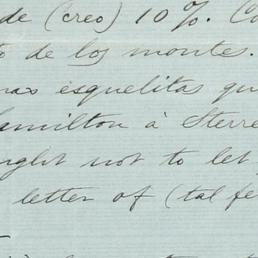 de (creo) 10%. Co
to de los montes.
nas esquelitas qu
Hamilton à Sterre
ought not to let y
letter of (tal fe